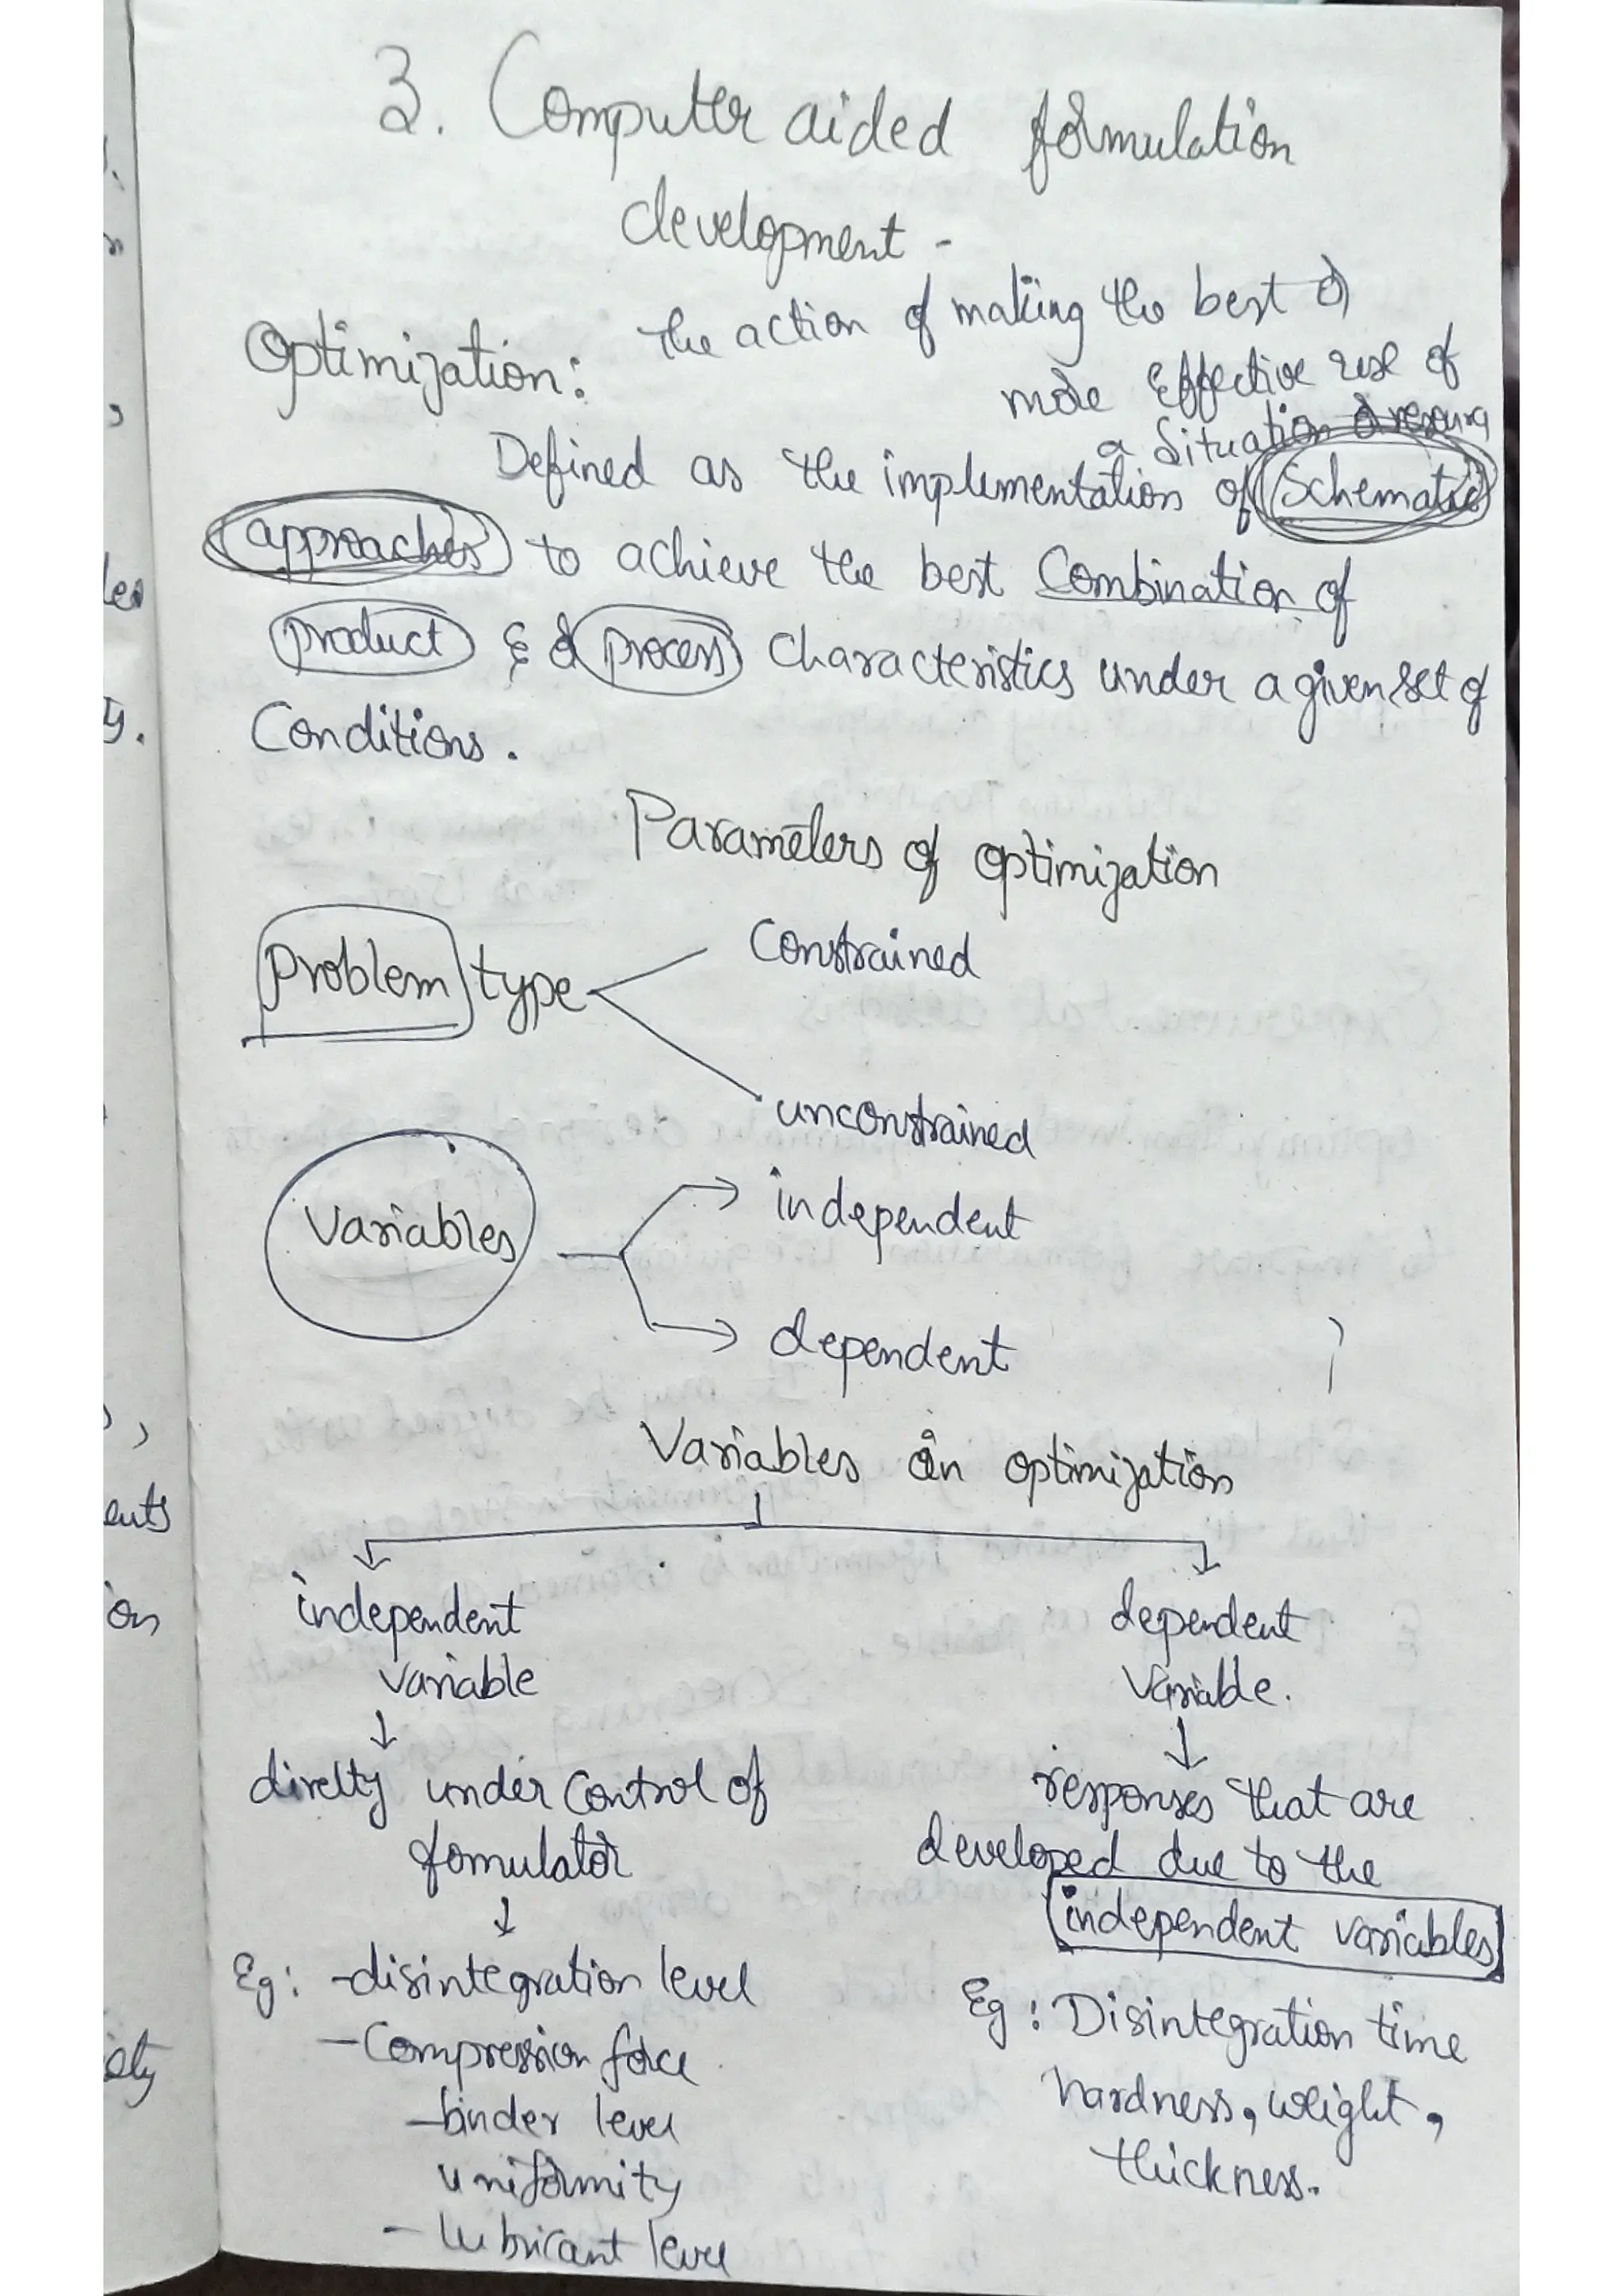 3. Computer aided formulation
development -
Optimization: the action of making the best or
more Effective use of
a Situation or resource
Defined as the implementation of Schematic
approaches to achieve the best Combination of
product & or process characteristics under a given set of
Conditions.
Parameters of optimization
Problem type
Constrained
unconstrained
Variables
independent
dependent
Variables in optimization
independent
variable
dependent
Variable.
direltly under control of
fomulator
responses that are
developed due to the
independent variables
Eg: -disintegration level
-Compression force
-binder level
uniformity
- lubricant level
Eg: Disintegration time
hardness, weight,
thickness.